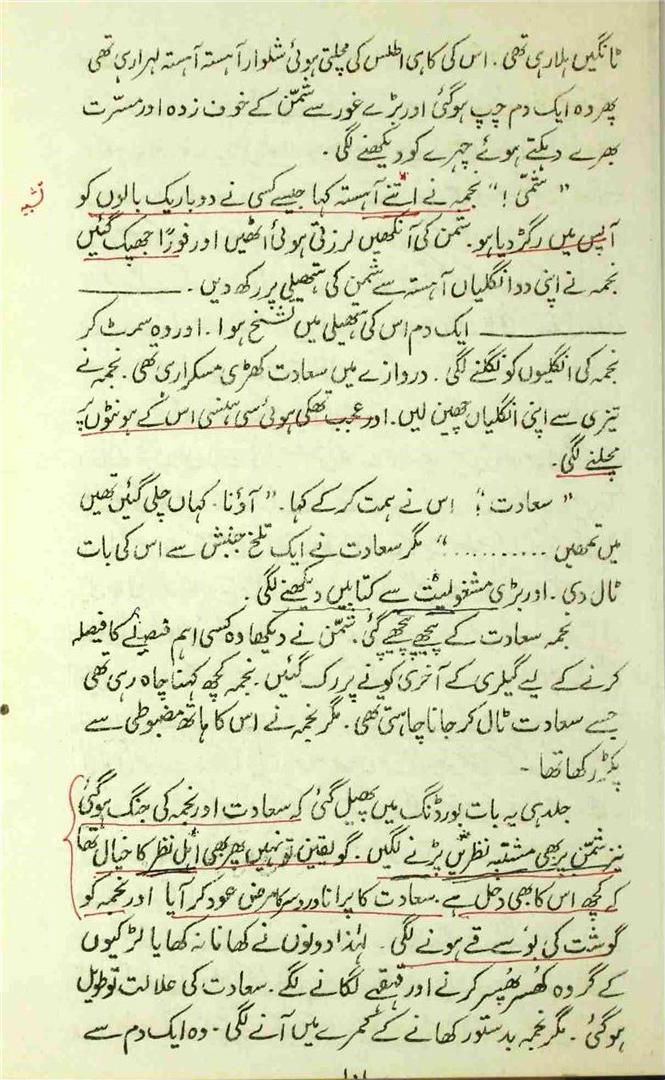 ٹانگیں ہلا رہی تھی۔ اس کی کاہی اطلس کی مچلتی ہوئی شلوار آہستہ آہستہ لہرا رہی تھی
پھر وہ ایک دم چپ ہو گئی اور بڑے غور سے شمّن کے خوف زدہ اور مسرّت
بھرے دہکتے ہوئے چہرے کو دیکھنے لگی۔
”شمّی!“ نجمہ نے اتنے آہستہ کہا جیسے کسی نے دو باریک بالوں کو
تشبیہ
آپس میں رگڑ دیا ہو۔ شمن کی آنکھیں لرزتی ہوئی اٹھیں اور فوراً جھپک گئیں
نجمہ نے اپنی دو انگلیاں آہستہ سے شمن کی ہتھیلی پر رکھ دیں۔ ———
——— ایک دم اس کی ہتھیلی میں تشنج ہوا۔ اور وہ سمرٹ کر
نجمہ کی انگلیوں کو نگلنے لگی۔ دروازے میں سعادت کھڑی مسکرا رہی تھی۔ نجمہ نے
تیزی سے اپنی انگلیاں چھین لیں۔ اور عجب تھکی ہوئی سی ہنسی اس کے ہونٹوں پر
مچلنے لگی۔
”سعادت!“ اس نے ہمت کر کے کہا۔ ”آؤ نا۔ کہاں چلی گئیں تھیں
میں تمھیں ..........“ مگر سعادت نے ایک تلخ جنبش سے اس کی بات
ٹال دی۔ اور بڑی مشغولیت سے کتابیں دیکھنے لگی۔
نجمہ سعادت کے پیچھے پیچھے گئی۔ شمّن نے دیکھا وہ کسی اہم قضیے کا فیصلہ
کرنے کے لیے گیلری کے آخری کونے پر رک گئیں۔ نجمہ کچھ کہنا چاہ رہی تھی
جسے سعادت ٹال کر جانا چاہتی تھی۔ مگر نجمہ نے اس کا ہاتھ مضبوطی سے
پکڑ رکھا تھا۔
جلد ہی یہ بات بورڈنگ میں پھیل گئی کہ سعادت اور نجمہ کی جنگ ہو گئی
نیز شمّن پر بھی مشتبہ نظریں پڑنے لگیں۔ گو یقین تو نہیں پھر بھی اہل نظر کا خیال تھا
کے کچھ اس کا بھی دخل ہے۔ سعادت کا پرانا دردسر کا مرض عود کر آیا اور نجمہ کو
گوشت کی بو سے قے ہونے لگی۔ لہٰذا دونوں نے کھانا نہ کھایا لڑکیوں
کے گروہ کھُسر پھُسر کرنے اور قہقہے لگانے لگے۔ سعادت کی علالت تو طویل
ہو گئی۔ مگر نجمہ بدستور کھانے کے کمرے میں آنے لگی۔ وہ ایک دم سے